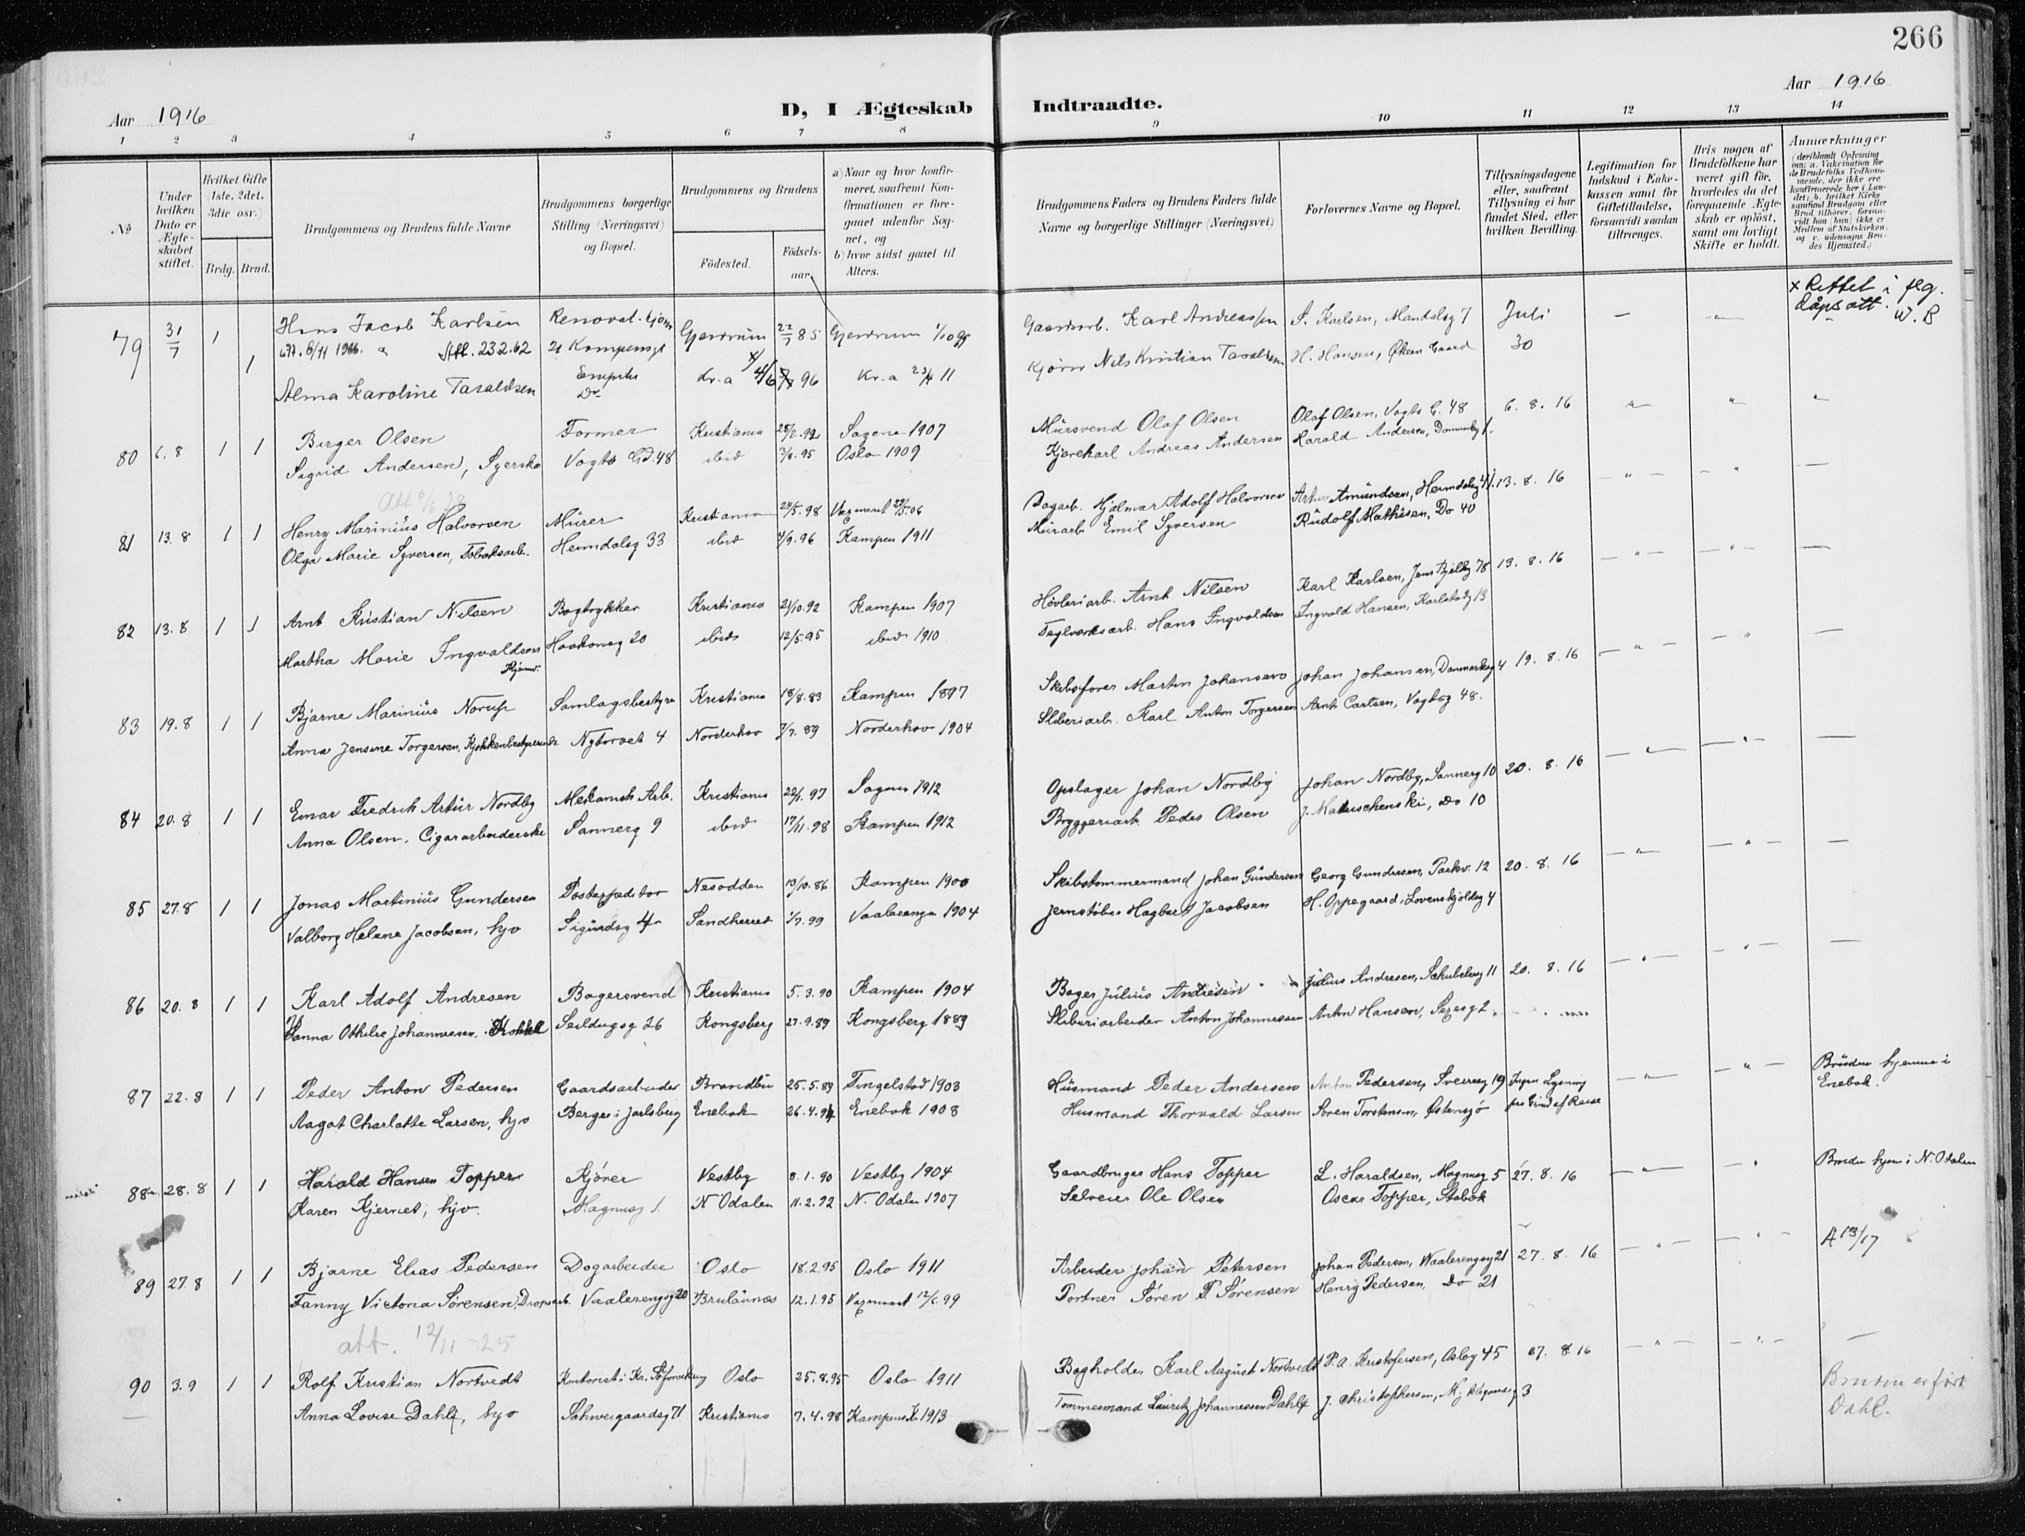 266
Aar 1916
D, I Ægteskab Indtraadte.
Aar 1916
1 2 3 4 5 6 7 8 9 10 11 12 13 14
No
Under hvilken Dato er Ægteskabet stiftet.
Hvilket Gifte (1ste, 2det, 3die osv.)
Brdg. Brud.
Brudgommens og Brudens fulde Navne
Brudgommens borgerlige Stilling (Næringsvei) og Bopæl.
Brudgommens og Brudens
Födested.
Födsels-aar
a) Naar og hvor konfirmeret, saafremt Konfirmationen er foregaaet udenfor Sognet, og
b) hvor sidst gaaet til Alters.
Brudgommens Faders og Brudens Faders fulde Navne og borgerlige Stillinger (Næringsvei)
Forlovernes Navne og Bopæl.
Tillysningsdagene eller, saafremt Tillysning ei har fundet Sted, efter hvilken Bevilling.
Legitimation for Indskud i Enkekassen samt for Giftetilladelse, forsaavidt saadan tiltrænges.
Hvis nogen af Brudefolkene har været gift før, hvorledes da det foregaaende Ægteskab er opløst, samt om lovligt Skifte er holdt.
Anmærkninger
(deriblandt Oplysning om: a. Vakcination for de Brudefolks Vedkommende, der ikke ere konfirmerede her i Landet; b. hvilket Kirkesamfund Brudgom eller Brud tilhører, forsaavidt han (hun) ikke er Medlem af Statskirken, og c. udensogns Brudes Hjemsted.)
79 31/7 1 Hans Jacob Karlsen Renovat. kjører Gjerdrum 22/7 85 Gjerdrum 1/10 99 Gaardsarb. Karl Andreassen A. Karlsen, Mandalsg 7 Juli — — x Rettet i flg. dåpsatt. W.B
utt. 6/11 1966. Att. 23.2.62 21 Kampensgt 30
1 Alma Karoline Taraldsen Do Kr.a x 4/6 96 Kr.a 23/4 11 Kjører Nils Kristian Taraldsen H. Hansen, Økern Gaard
80 6.8 1 1 Birger Olsen Former Kristiania 28/2.92 Sagene 1907 Mursvend Olaf Olsen Olaf Olsen, Vogts G. 48 6.8.16 " " "
Sigrid Andersen, Syerske Vogts Gd. 48 ibid 3/6.95 Oslo 1909 Kjørekarl Andreas Andersen Harald Andersen, Danmarksg 1.
81 13.8 1 1 Henry Marinius Halvorsen Murer Kristiania 24/5.98 Dagarb. Hjalmar Adolf Halvorsen Amundsen, Heimdalsg 41. 13.8.16 — " — —
Olga Marie Syversen, Tobaksarb. Heimdalsg 33 ibid 4/9.96 Kampen 1911 Murarb. Emil Syversen Rudolf Mathisen, Do 40
82 13.8 1 1 Arnt Kristian Nilsen Bogtrykker Kristiania 21/10.92 Kampen 1907 Høvleriarb. Arnt Nilsen Karl Karlsen, Jens Bjelkeg 78 13.8.16 — " — —
Martha Marie Ingvaldsen Haakonsg 20 ibid 12/5.95 ibid 1910 Teglverksarb. Hans Ingvaldsen Ingvald Hansen, Karlstadg 13
Hjemv.
83 19.8 1 1 Bjarne Marinius Norup Samlagsbestyrer Kristiania 18/8.83 Kampen 1897 Skibsfører Martin Johansen Johan Johansen, Danmarksg 4 19.8.16 — " — —
Anna Jensine Torgersen, Kjøkkenbestyrerinde Nytorvet 4 Norderhov 7/7.89 Norderhov 1904 Sliberiarb. Karl Anton Torgersen Arnt Carlsen, Vogtsg 48.
84 20.8 1 1 Einar Fredrik Artur Nordby Mekanisk Arb. Kristiania 22/1.97 Sagene 1912 Opslager Johan Nordby Johan Nordby, Sannerg 10 20.8.16 — " — —
Anna Olsen, Cigararbeiderske Sannerg 9 ibid 17/11.98 Kampen 1912 Bryggeriarb. Peder Olsen J. Matuschenski, Do 10
85 27.8 1 1 Jonas Martinius Gundersen Postexpeditør Nesodden 10/10.86 Kampen 1900 Skibstømmermand Johan Gundersen Georg Gundersen, Parkv. 12 20.8.16 — " — —
Valborg Helene Jacobsen, hjv Sigurdsg 4 Sandherred Vaalerengen 1904 Jernstøber Hagbart Jacobsen H. Oppegaard, Løvenskjoldsg 4
86 20.8 1 1 Karl Adolf Andresen Bagersvend Kristiania 5.3.90 Kampen 1904 Bager Julius Andresen Julius Andresen, Schubelersg 11 20.8.16 — " — —
Hanna Othilie Johannessen, Kokke Seildugsg 26 Kongsberg 27.9.89 Kongsberg 1889 Sliberiarbeider Anton Johannessen Anton Hansen,
87 22.8 1 1 Peder Anton Pedersen Gaardsarbeider Brandbu 25.5.89 Tingelstad 1903 Husmand Peder Andersen Anton Pedersen, Sverresg 19 Ingen Lysning — " — Bruden hjemme i
Aagot Charlotte Larsen, hjv Berger i Jarlsberg Enebak 26.4.94 Enebak 1908 Husmand Thorvald Larsen Soren Torstensen, Østensjø Enebak.
88 28.8 1 1 Harald Hansen Topper Kjører Vestby 8.1.90 Vestby 1904 Gaardbruger Hans Topper L. Haraldsen, Magnusg 5 27.8.16 — " — Bruden hjem i N. Odalen
Karen Kjernet, hjv. Magnusg 1. N Odalen 11.2.92 N. Odalen 1907 Selveier Ole Olsen Oscar Topper, Stabæk
89 27.8 1 1 Bjarne Elias Pedersen Dagarbeider Oslo 18.2.95 Oslo 1911 Arbeider Johan Petersen Johan Pedersen, Waalerengsg 21 27.8.16 — " — A 13/17
Fanny Victoria Sørensen, Dropsarb. Vaalerengsg 20 12.1.95 Vaxeneret 12/6.99 Portner Søren P. Sørensen Henrig Pedersen, Do 21
att. 12/11-25
90 3.9 1 1 Rolf Kristian Nortvedt Kontorist i Oslo 25.8.95 Oslo 1911 Bogholder Karl August Nortvedt P.A. Kristofersen, Oslog 45 27.8.16 — " — —
Anna Lovise Dahl, hjv Schweigaardsg 71 Kristiania 7.4.98 Kampens K. 1913 Tømmermand Lauritz Johannessen Dahl J. Christophersen, 3 Bruden er født
Dahl.